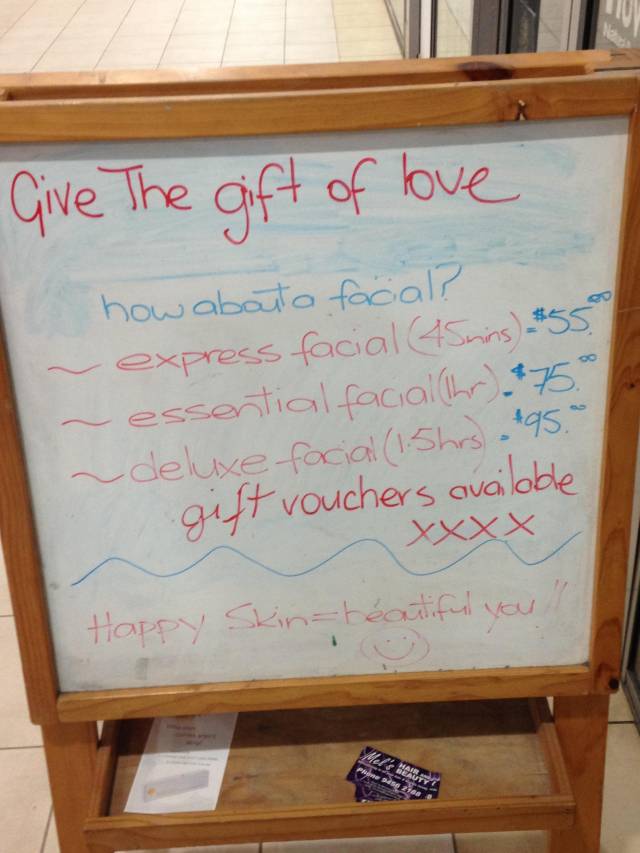 Give The gift of love
how about a facial?
~ express facial (45mins) - $55.00
~ essential facial (1hr) - $75.00
~ deluxe facial (1.5hrs) - $95.00
gift vouchers available
xxxx
Happy Skin = beautiful you!!
Mel's HAIR AND BEAUTY